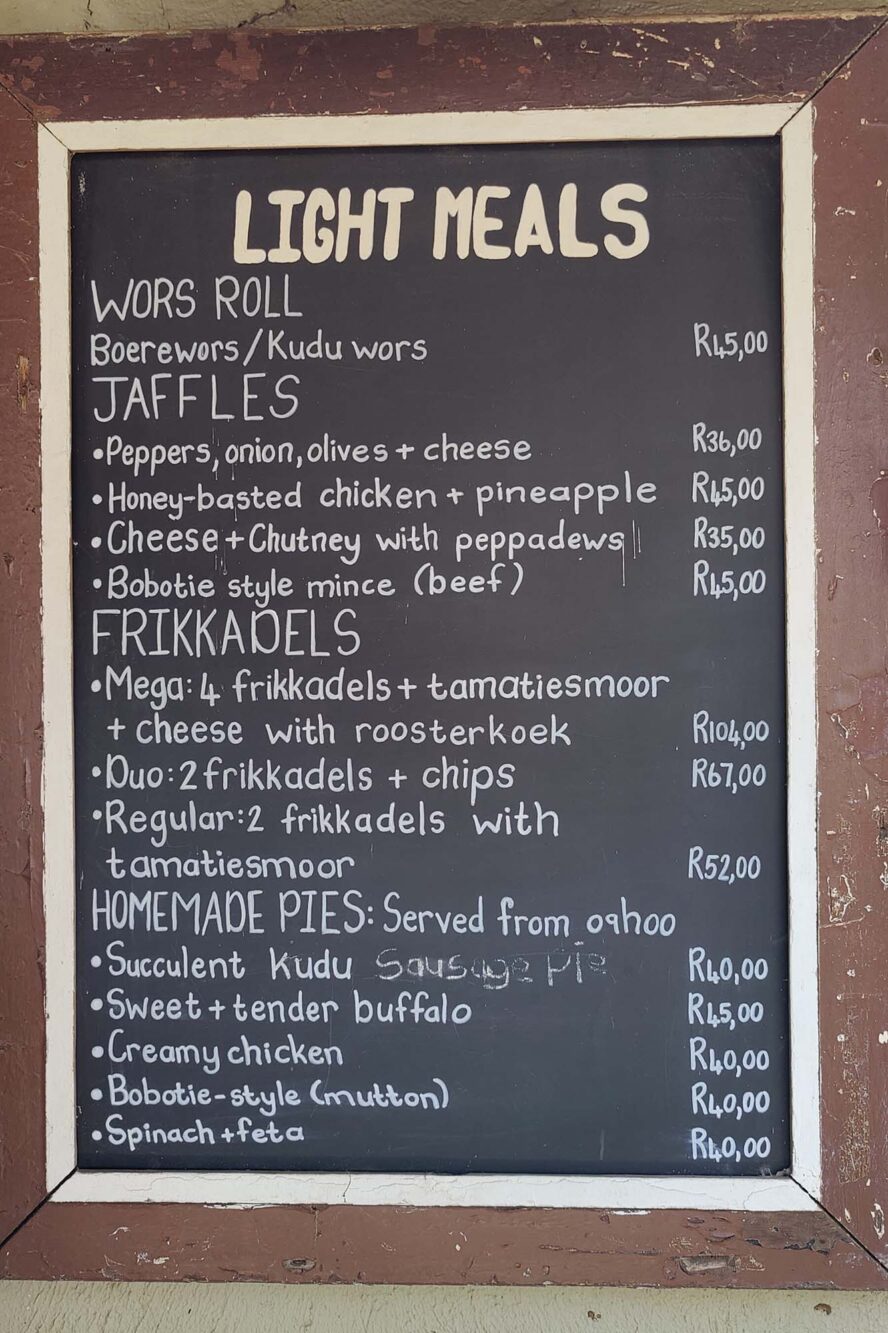 LIGHT MEALS
WORS ROLL
Boerewors/Kudu wors R45,00
JAFFLES
•Peppers, onion, olives + cheese R36,00
•Honey-basted chicken + pineapple R45,00
•Cheese + Chutney with peppadews R35,00
•Bobotie style mince (beef) R45,00
FRIKKADELS
•Mega: 4 frikkadels + tamatiesmoor
+ cheese with roosterkoek R104,00
•Duo: 2 frikkadels + chips R67,00
•Regular: 2 frikkadels with
tamatiesmoor R52,00
HOMEMADE PIES: Served from 09h00
•Succulent Kudu Sausage Pie R40,00
•Sweet + tender buffalo R45,00
•Creamy chicken R40,00
•Bobotie-style (mutton) R40,00
•Spinach + feta R40,00